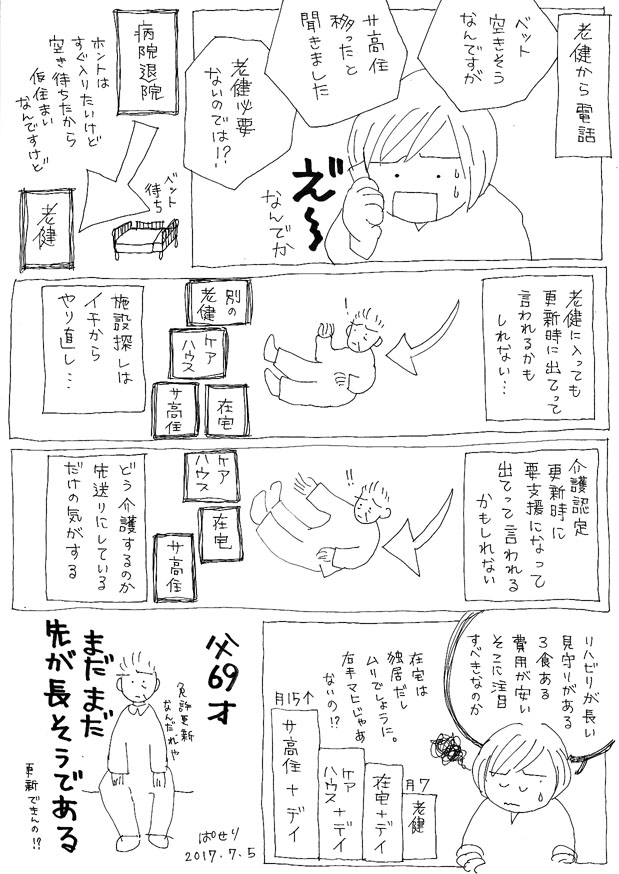 老健から電話
ベット
空きそう
なんですが
サ高住
移ったと
聞きました
老健必要
ないのでは!?
え〜
なんでか
病院退院
ホントは
すぐ入りたいけど
空き待ちだから
仮住まい
なんですけど
ベント
待ち
老健
老健に入っても
更新時に出てって
言われるかも
しれない…
!
別の
老健
ケア
ハウス
在宅
サ高住
施設探しは
イチから
やり直し…
介護認定
更新時に
要支援になって
出てって言われる
かもしれない
!!
ケア
ハウス
在宅
サ高住
どう介護するのか
先送りにしている
だけの気がする
リハビリが長い
見守りがある
3食ある
費用が安い
そこに注目
すべきなのか
在宅は
独居だし
ムリでしょうに。
右手マヒじゃあ
ないの!?
月7
老健
在宅+デイ
ケア
ハウス+デイ
月15↑
サ高住+デイ
父69才
まだまだ
先が長そうである
免許更新
なんだれや
更新できんの!?
ぱせり
2017.7.5